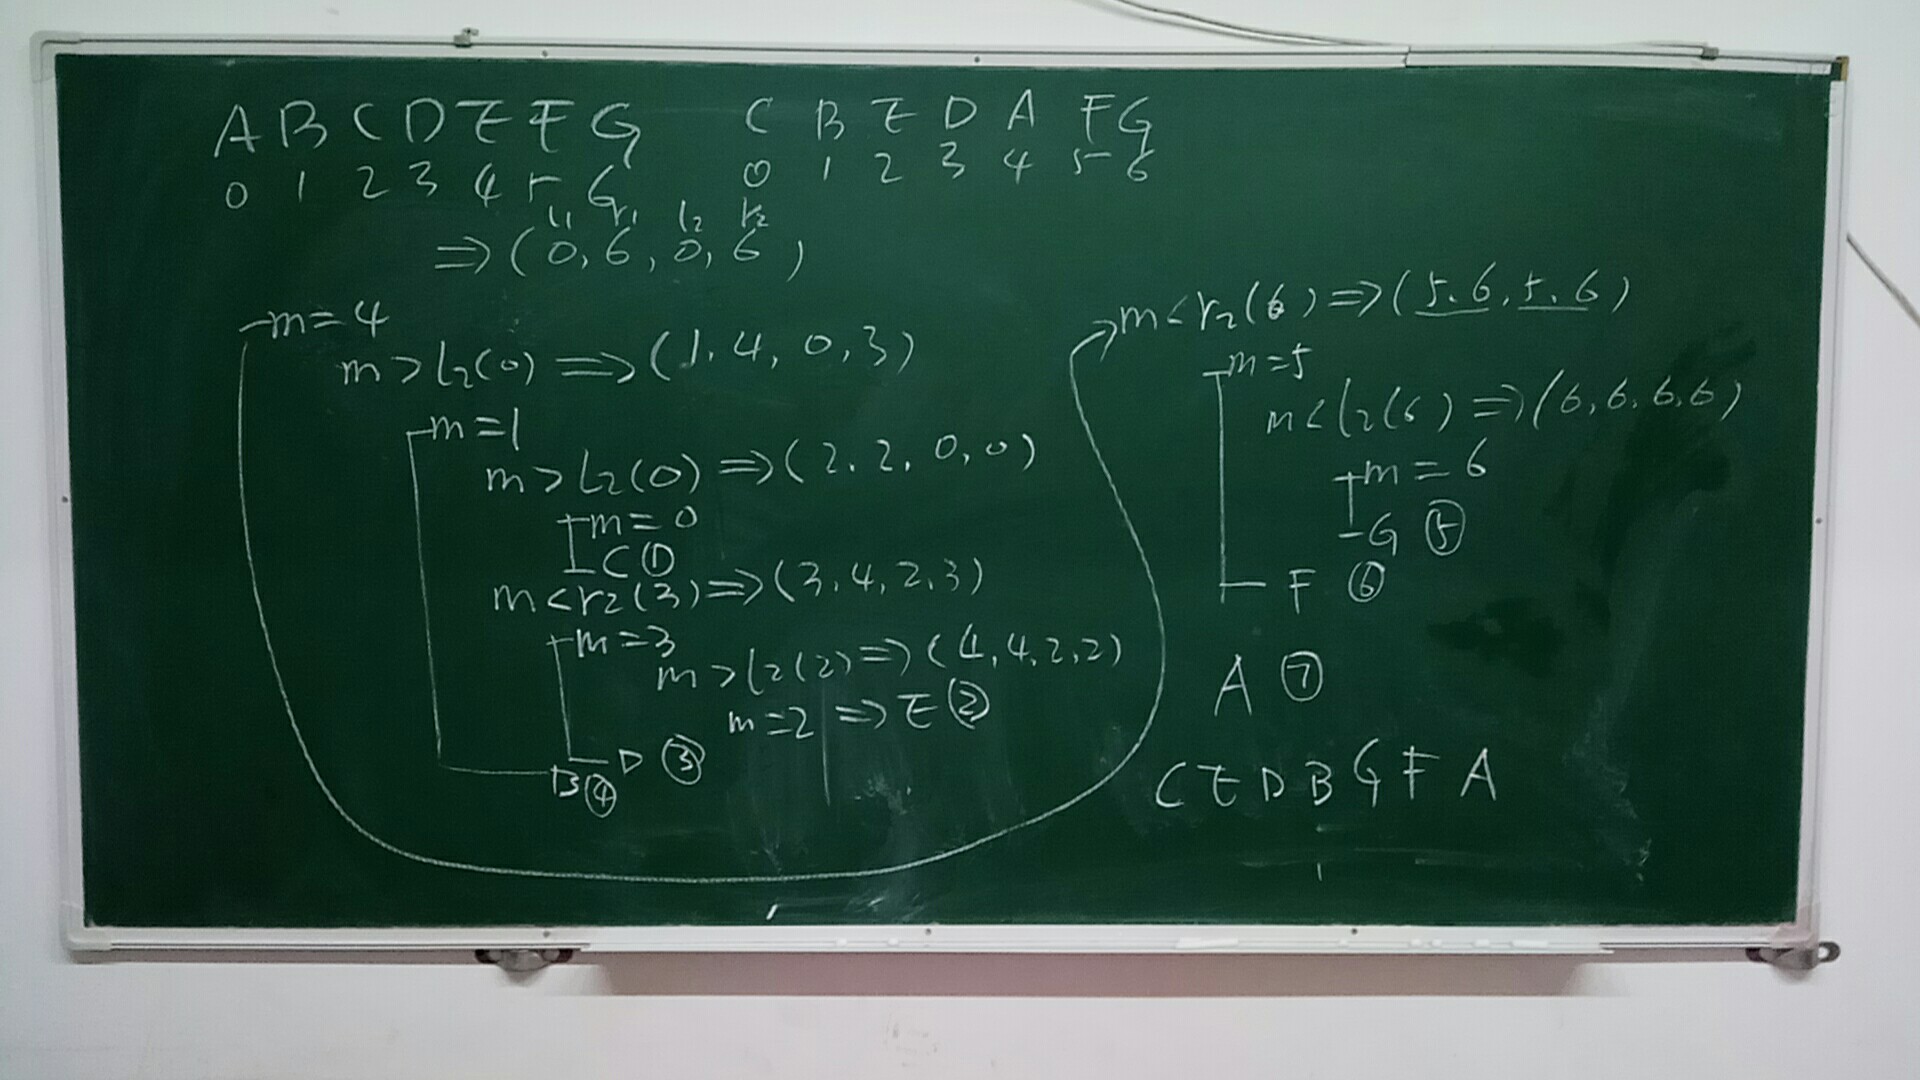 A B C D E F G C B E D A F G
0 1 2 3 4 5 6 0 1 2 3 4 5 6
l₁ r₁ l₂ r₂
⇒ (0, 6, 0, 6)
m = 4
m > l₂(0) ⇒ (1, 4, 0, 3)
m = 1
m > l₂(0) ⇒ (2, 2, 0, 0)
m = 0
C ①
m < r₂(3) ⇒ (3, 4, 2, 3)
m = 3
m > l₂(2) ⇒ (4, 4, 2, 2)
m = 2 ⇒ E ②
D ③
B ④
m < r₂(6) ⇒ (5, 6, 5, 6)
m = 5
m < l₂(6) ⇒ (6, 6, 6, 6)
m = 6
G ⑤
F ⑥
A ⑦
C E D B G F A